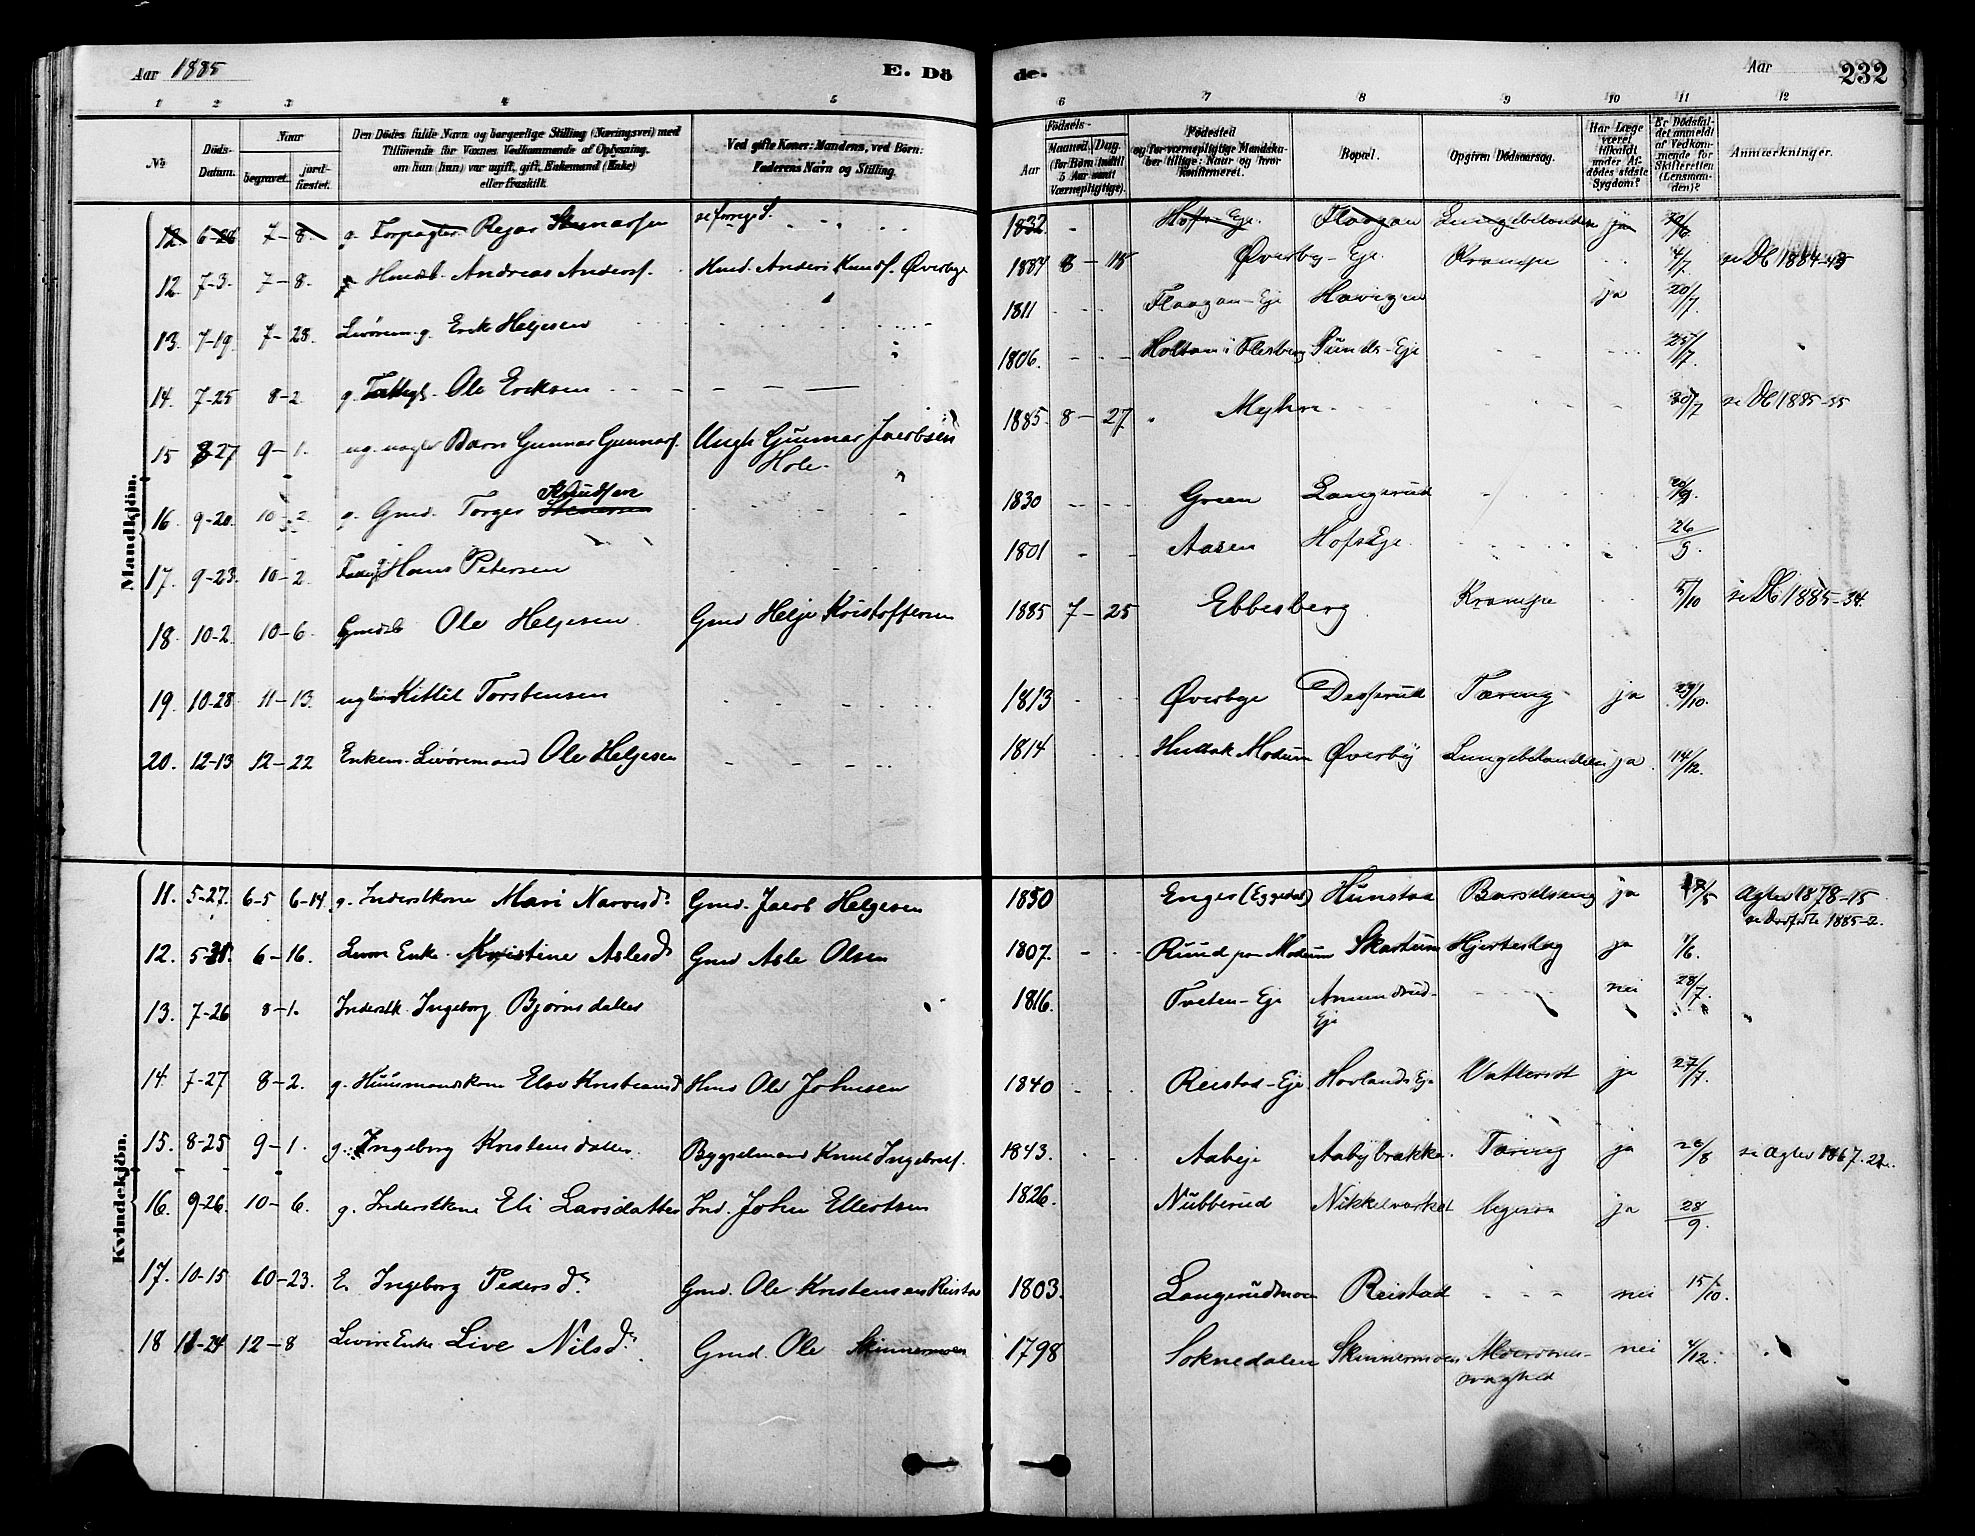 Aar 1885
E. Dö
de.
Aar
232
1 2 3 4 5 6 7 8 9 10 11 12
No
Døds-Datum.
Naar
begravet.
jordfæstet.
Den Dødes fulde Navn og borgerlige Stilling (Næringsvei) med
Tilföiende for Voxnes Vedkommende af Oplysning,
om han (hun) var ugift, gift, Enkemand (Enke)
eller fraskilt.
Ved gifte Koner: Mandens, ved Börn:
Faderens Navn og Stilling.
Födsels-
Aar
Maaned. Dag.
(for Börn indtil
5 Aar samt
Værnepligtige).
Födested
og for værnepligtige Mandska-
ber tillige: Naar og hvor
Konfirmeret.
Bopæl.
Opgiven Dödsaarsag.
Har Læge
været
tilkaldt
under Af-
dødes sidste
Sygdom?
Er Dödsfal-
det anmeldt
af Vedkom-
mende for
Skifteretten
(Lensman-
den)?
Anmærkninger.
Mandkjön.
12 6-26 7-8 g. Forpagter Reyar se forrige S. 1832 Hofs Eje. Flaagan Lungebetændelse ja
12 7-3. 7-8. Andreas Anders. Anders Knuds. Øverbye 1884 8-18 Øverby-Eje Krampe 4/7 se Db 1884-43
13. 7-19. 7-28. g. Erik Helgesen 1811 Flaagan-Eje Havigen ja 20/7
14. 7-25 8-2. g. Ole Eriksen 1806. Holtan i Flesberg Sunds-Eje 25/7
15 8-27 9-1. Barn Gunnar Gunnars. Ungk Gunnar Jacobsen Hole. 1885. 8-27. Myhre 30/7 se Db 1885-35
16. 9-20. 10-2. g. Gmd. Torger Knudsen 1830 Green Langerud
17. 9-23. 10-2. Hans Petersen 1801 Aasen Hofs Eje. 26/9.
18. 10-2. 10-6. Ole Helgesen Gmd Helje Kristoffersen 1885 7-25 Ebbesberg Krampe 5/10 se Db 1885-34.
19. 10-28. 11-13. Kittil Torstensen 1813 Øverbye Desserud Tæring ja 29/10.
20. 12-13 12-22 Enkem. Livöremand Ole Helgesen 1814 Hullak Modum Øverby Lungebetændelse ja 14/12.
Kvindekjön.
11. 5-27. 6-5 6-14 g. Inderstkone Mari Narvesd. Gmd. Jacob Helgesen 1850 Enger (Eggedal) Hunstad Barselseng ja Agtev 1878-15
1885-2.
12. 5-31. 6-16. Enke Kristine Aslesd Gmd Asle Olsen 1807. Ruud paa Modum Skartum Hjerteslag ja
13. 7-26 8-1. Inderstk. Ingeborg Bjørnsdatter 1816. Tveten-Eje Amundrud-Eje nei 28/7.
14. 7-27 8-2. g. Huusmandskone Else Hms Ole Johnsen 1840 Reistad-Eje Hovlands Eje Vattersot ja 27/7.
15. 8-25 9-1. g. Ingeborg Kristensdatter Byggselmand Knut Ingebr. 1843. Aabye Aabybrakka Tæring ja 26/8 se Agtev 1867-22.
16. 9-26. 10-6. g. Inderstkone Eli Larsdatter Ind. John Ellertsen 1826. Nubberud Nikkelværket ja 28/9.
17. 10-15 10-23. E. Ingeborg Pedersd. Gmd. Ole Kristensen Reistad 1803. Langerudmoen Reistad nei 15/10.
18 11-24 12-8 Enke Live Nilsd. Gmd. Ole Skinnermoen 1798 Soknedalen Skinnermoen Alderdoms-svaghed nei 4/12.